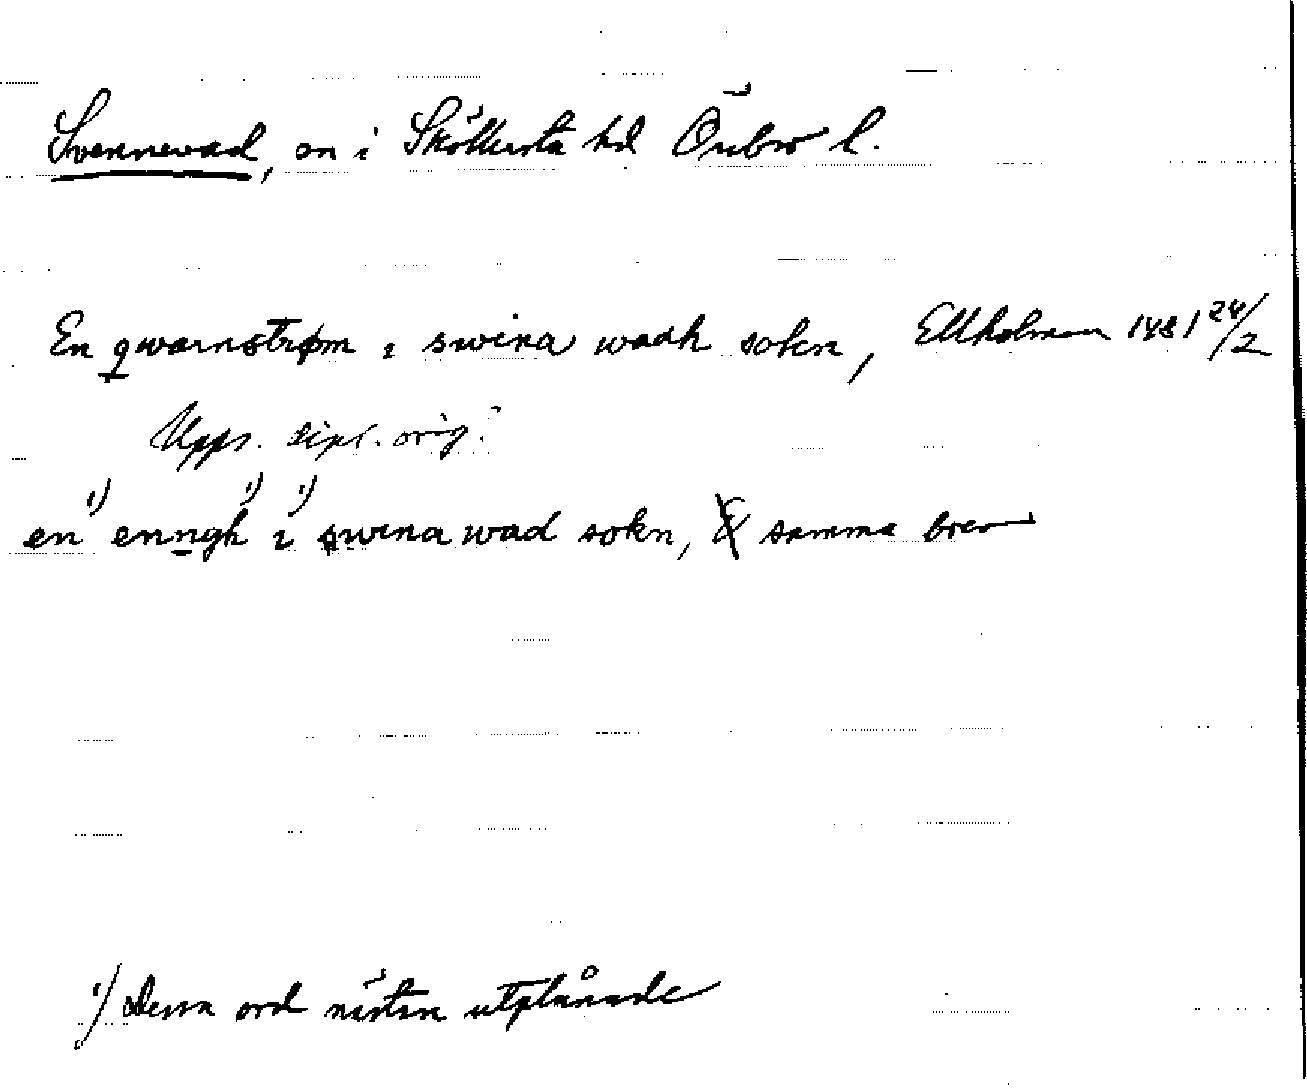 Svennevad, sn i Sköllersta hd Örebro l.
En qwarnstrøm i swina wadh sokn, Ekholmen 1481 24/2
Upps. dipl. orig.
en¹⁾ enngh¹⁾ i¹⁾ swina wad sokn, samma brev
¹⁾ Dessa ord nästan utplånade